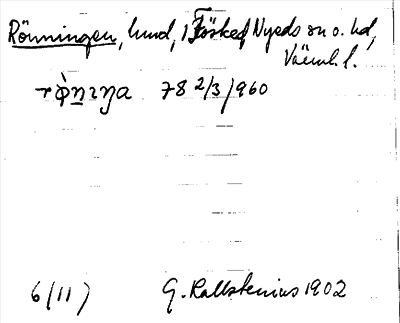 Rönningen, lund, 1 Föskefj Nyeds sn o. hd,
Värml. l.
rǫ̀nɪŋa 78 2/3/960
6(11) G. Kallstenius 1902